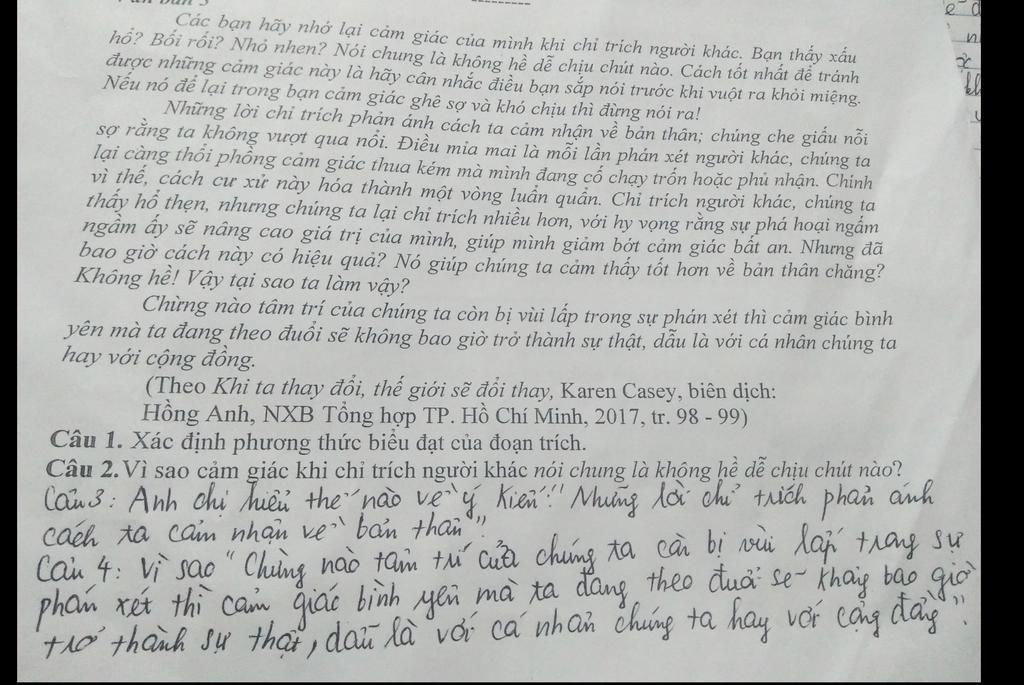 Các bạn hãy nhớ lại cảm giác của mình khi chỉ trích người khác. Bạn thấy xấu
hổ? Bối rối? Nhỏ nhen? Nói chung là không hề dễ chịu chút nào. Cách tốt nhất để tránh
được những cảm giác này là hãy cân nhắc điều bạn sắp nói trước khi vuột ra khỏi miệng.
Nếu nó để lại trong bạn cảm giác ghê sợ và khó chịu thì đừng nói ra!
Những lời chỉ trích phản ánh cách ta cảm nhận về bản thân; chúng che giấu nỗi
sợ rằng ta không vượt qua nổi. Điều mỉa mai là mỗi lần phán xét người khác, chúng ta
lại càng thổi phồng cảm giác thua kém mà mình đang cố chạy trốn hoặc phủ nhận. Chính
vì thế, cách cư xử này hóa thành một vòng luẩn quẩn. Chỉ trích người khác, chúng ta
thấy hổ thẹn, nhưng chúng ta lại chỉ trích nhiều hơn, với hy vọng rằng sự phá hoại ngấm
ngầm ấy sẽ nâng cao giá trị của mình, giúp mình giảm bớt cảm giác bất an. Nhưng đã
bao giờ cách này có hiệu quả? Nó giúp chúng ta cảm thấy tốt hơn về bản thân chăng?
Không hề! Vậy tại sao ta làm vậy?
Chừng nào tâm trí của chúng ta còn bị vùi lấp trong sự phán xét thì cảm giác bình
yên mà ta đang theo đuổi sẽ không bao giờ trở thành sự thật, dẫu là với cá nhân chúng ta
hay với cộng đồng.
(Theo Khi ta thay đổi, thế giới sẽ đổi thay, Karen Casey, biên dịch:
Hồng Anh, NXB Tổng hợp TP. Hồ Chí Minh, 2017, tr. 98 - 99)
Câu 1. Xác định phương thức biểu đạt của đoạn trích.
Câu 2. Vì sao cảm giác khi chỉ trích người khác nói chung là không hề dễ chịu chút nào?
Câu 3: Anh chị hiểu thế nào về ý kiến: "Những lời chỉ trích phản ánh
cách ta cảm nhận về bản thân".
Câu 4: Vì sao "Chừng nào tâm trí của chúng ta còn bị vùi lấp trong sự
phán xét thì cảm giác bình yên mà ta đang theo đuổi sẽ không bao giờ
trở thành sự thật, dẫu là với cá nhân chúng ta hay với cộng đồng".